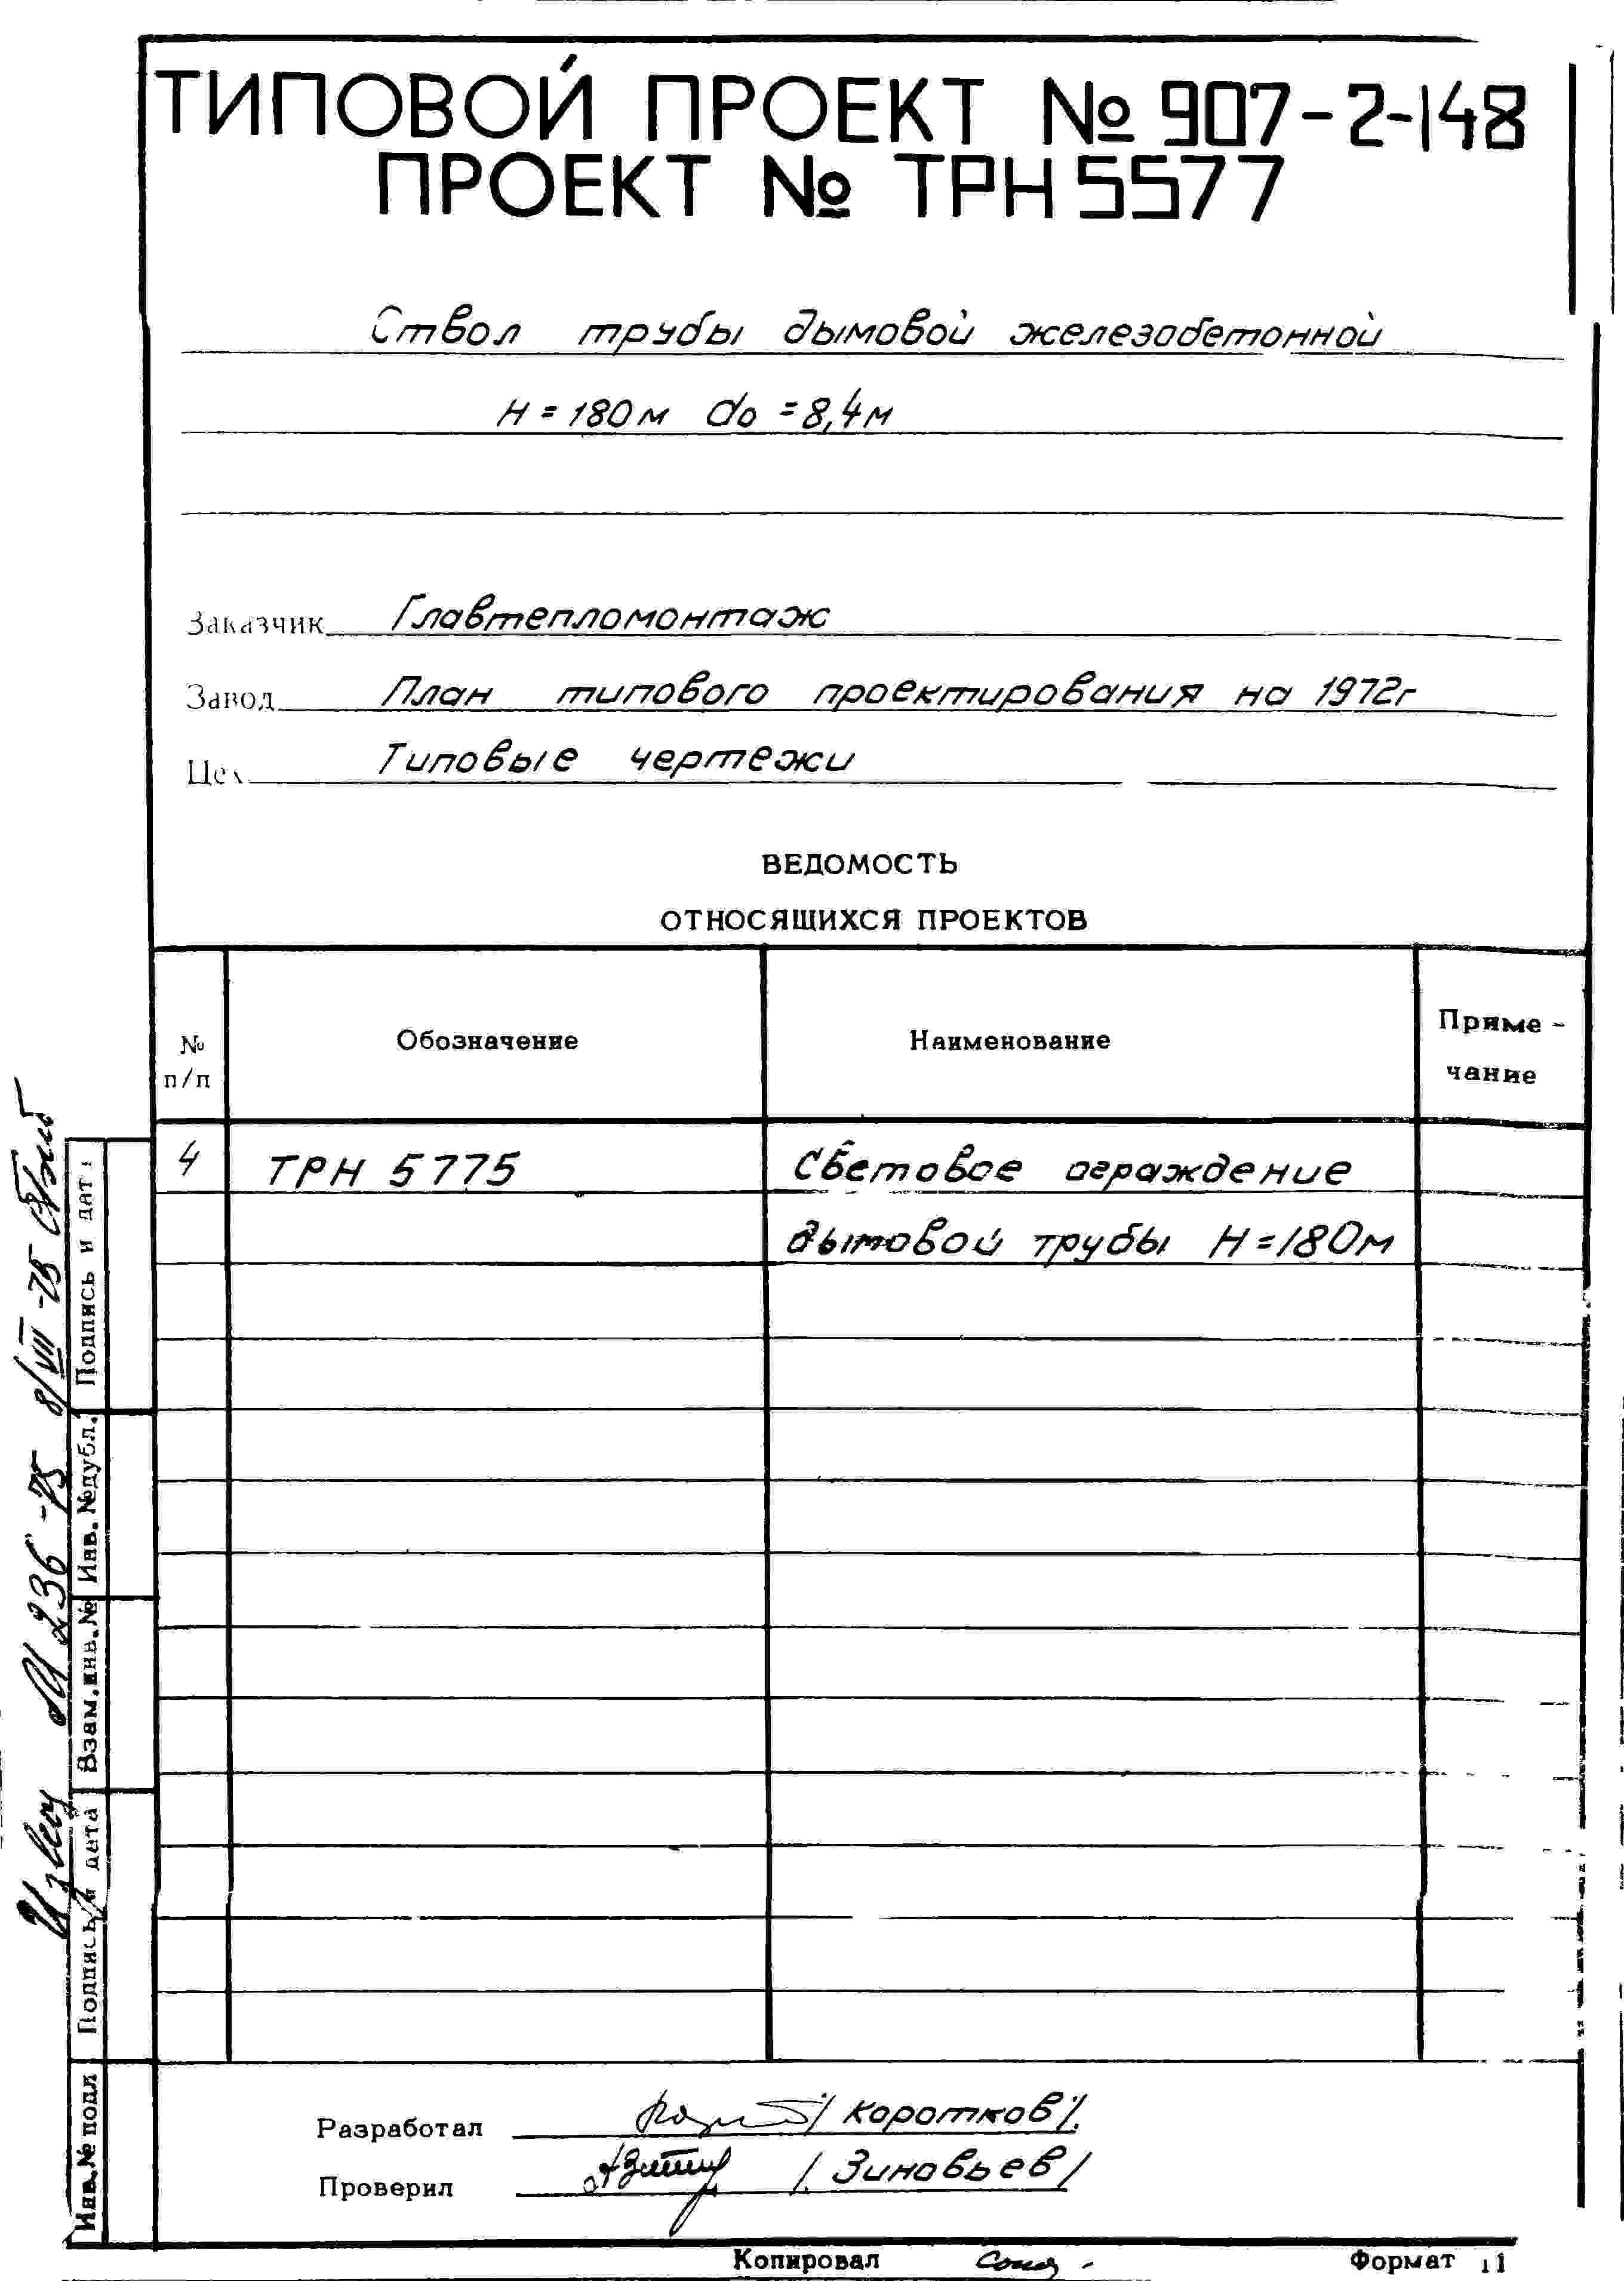 ТИПОВОЙ ПРОЕКТ № 907-2-148
ПРОЕКТ № ТРН 5577
Ствол трубы дымовой железобетонной
H = 180м do = 8,4м
Заказчик Главтепломонтаж
Завод План типового проектирования на 1972г
Цех Типовые чертежи
ВЕДОМОСТЬ
ОТНОСЯЩИХСЯ ПРОЕКТОВ
№ п/п
Обозначение
Наименование
Приме-
чание
4 ТРН 5775 Световое ограждение
дымовой трубы H=180м
Разработал /Коротков/.
Проверил /Зиновьев/
Копировал Формат 11
Инв.№ подл
Подпись и дата
Взам.инв.№
Инв.№дубл.
Подпись и дата
Извещ 236-75 8/VII-75